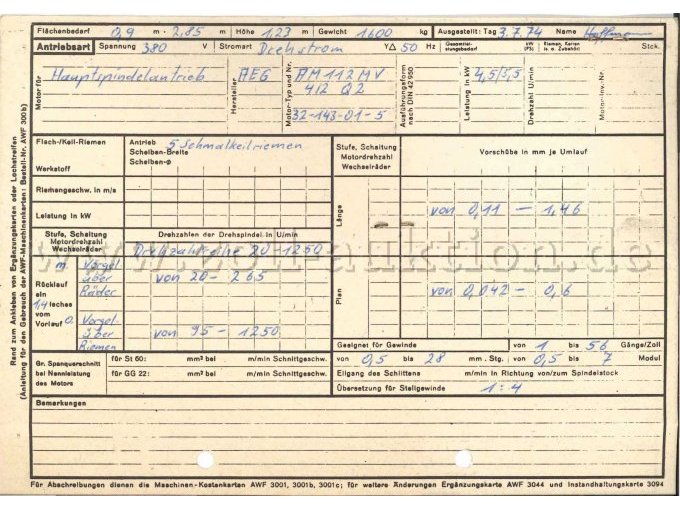 Flächenbedarf 0,9 m · 2,85 m Höhe 1,23 m Gewicht 1600 kg Ausgestellt: Tag 3.7.74 Name
Antriebsart Spannung 380 V Stromart Drehstrom Y△ 50 Hz Gesamtleistungsbedarf kW (PS) Riemen, Ketten (s. a. Zubehör) Stck.
Motor für Hauptspindelantrieb Hersteller AEG Motor-Typ und Nr. AM 112 MV Ausführungsform nach DIN 42 950 Leistung in kW 4,5/5,5 Drehzahl U/min Motor-Inv.-Nr.
4/2 Q2
32-143-01-5
Flach-/Keil-Riemen
Werkstoff
Antrieb 5 Schmalkeilriemen
Scheiben-Breite
Scheiben-Ø
Riemengeschw. in m/s
Leistung in kW
Stufe, Schaltung
Motordrehzahl
Wechselräder
Drehzahlen der Drehspindel in U/min
Drehzahlreihe 20-1250
Rücklauf ein 1,4 faches vom Vorlauf
m. Vorgel über Räder von 20-265
o. Vorgel- über Riemen von 95-1250
Gr. Spanquerschnitt
bei Nennleistung
des Motors
für St 60: mm² bei m/min Schnittgeschw.
für GG 22: mm² bei m/min Schnittgeschw.
Stufe, Schaltung
Motordrehzahl
Wechselräder
Vorschübe in mm je Umlauf
Längs von 0,11 - 1,46
Plan von 0,042 - 0,6
Geeignet für Gewinde von 1 bis 56 Gänge/Zoll
von 0,5 bis 28 mm . Stg. von 0,5 bis 7 Modul
Eilgang des Schlittens m/min in Richtung von/zum Spindelstock
Übersetzung für Steilgewinde 1:4
Bemerkungen
Für Abschreibungen dienen die Maschinen-Kostenkarten AWF 3001, 3001b, 3001c; für weitere Änderungen Ergänzungskarte AWF 3044 und Instandhaltungskarte 3094
Rand zum Ankleben von Ergänzungskarten oder Lochstreifen
(Anleitung für den Gebrauch der AWF-Maschinenkarten: Bestell-Nr. AWF 300b)